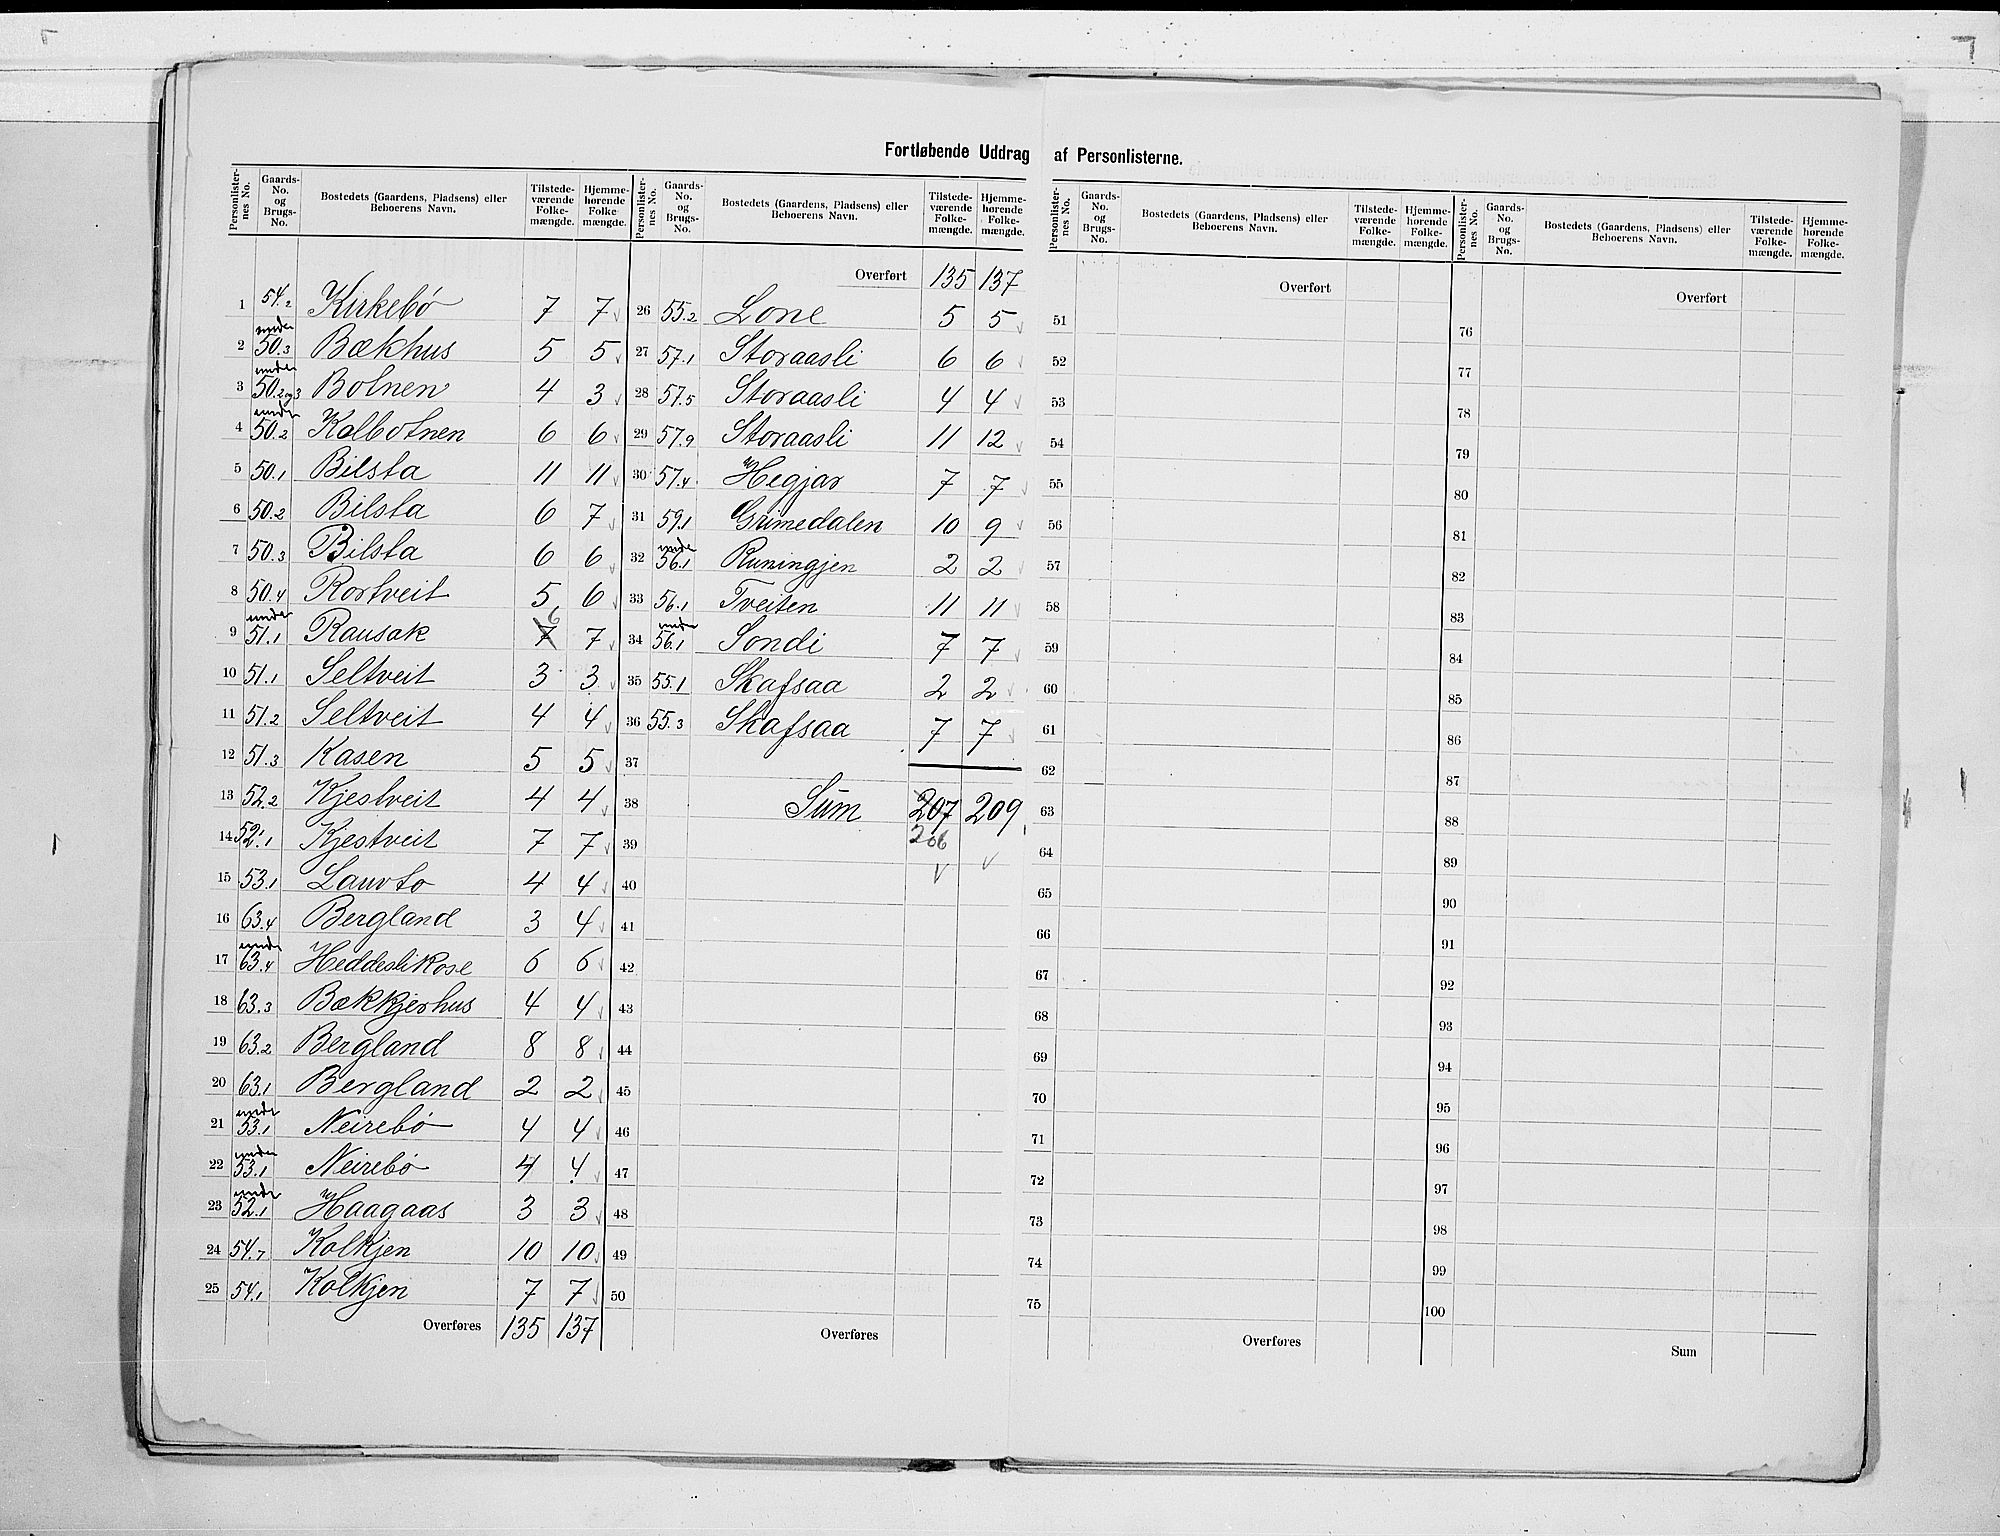 Fortløbende Uddrag af Personlisterne.
Personlister-nes No. | Gaards-No. og Brugs-No. | Bostedets (Gaardens, Pladsens) eller Beboerens Navn. | Tilstede-værende Folke-mængde. | Hjemme-hørende Folke-mængde.
1 | 54.2 | Kirkebø | 7 | 7 ✓
2 | under 50.3 | Bækhus | 5 | 5 ✓
3 | under 50.2og3 | Botnen | 4 | 3 ✓
4 | under 50.2 | Kolbotnen | 6 | 6 ✓
5 | 50.1 | Bilsta | 11 | 11 ✓
6 | 50.2 | Bilsta | 6 | 7 ✓
7 | 50.3 | Bilsta | 6 | 6 ✓
8 | 50.4 | Rortveit | 5 | 6 ✓
9 | under 51.1 | Rausak | 7 6 | 7 ✓
10 | 51.1 | Seltveit | 3 | 3 ✓
11 | 51.2 | Seltveit | 4 | 4 ✓
12 | 51.3 | Kasen | 5 | 5 ✓
13 | 52.2 | Kjestveit | 4 | 4 ✓
14 | 52.1 | Kjestveit | 7 | 7 ✓
15 | 53.1 | Lauvto | 4 | 4 ✓
16 | 63.4 | Bergland | 3 | 4 ✓
17 | under 63.4 | Heddeslikose | 6 | 6 ✓
18 | 63.3 | Bækkjerhus | 4 | 4 ✓
19 | 63.2 | Bergland | 8 | 8 ✓
20 | 63.1 | Bergland | 2 | 2 ✓
21 | under 53.1 | Neirebø | 4 | 4 ✓
22 | under 53.1 | Neirebø | 4 | 4 ✓
23 | under 52.1 | Haagaas | 3 | 3 ✓
24 | 54.7 | Kolkjen | 10 | 10 ✓
25 | 54.1 | Kolkjen | 7 | 7 ✓
Overføres | 135 | 137
Personlister-nes No. | Gaards-No. og Brugs-No. | Bostedets (Gaardens, Pladsens) eller Beboerens Navn. | Tilstede-værende Folke-mængde. | Hjemme-hørende Folke-mængde.
Overført | 135 | 137
26 | 55.2 | Lone | 5 | 5 ✓
27 | 57.1 | Storaasli | 6 | 6 ✓
28 | 57.5 | Storaasli | 4 | 4 ✓
29 | 57.9 | Storaasli | 11 | 12 ✓
30 | 57.4 | Hegjar | 7 | 7 ✓
31 | 59.1 | Grimedalen | 10 | 9 ✓
32 | under 56.1 | Runingjen | 2 | 2 ✓
33 | 56.1 | Tveiten | 11 | 11 ✓
34 | under 56.1 | Sondi | 7 | 7 ✓
35 | 55.1 | Skafsaa | 2 | 2 ✓
36 | 55.3 | Skafsaa | 7 | 7 ✓
37
38 | Sum | 207 | 209
39 | 206
✓ | ✓
40
41
42
43
44
45
46
47
48
49
50
Overføres
Personlister-nes No. | Gaards-No. og Brugs-No. | Bostedets (Gaardens, Pladsens) eller Beboerens Navn. | Tilstede-værende Folke-mængde. | Hjemme-hørende Folke-mængde.
Overført
51
52
53
54
55
56
57
58
59
60
61
62
63
64
65
66
67
68
69
70
71
72
73
74
75
Overføres
Personlister-nes No. | Gaards-No. og Brugs-No. | Bostedets (Gaardens, Pladsens) eller Beboerens Navn. | Tilstede-værende Folke-mængde. | Hjemme-hørende Folke-mængde.
Overført
76
77
78
79
80
81
82
83
84
85
86
87
88
89
90
91
92
93
94
95
96
97
98
99
100
Sum